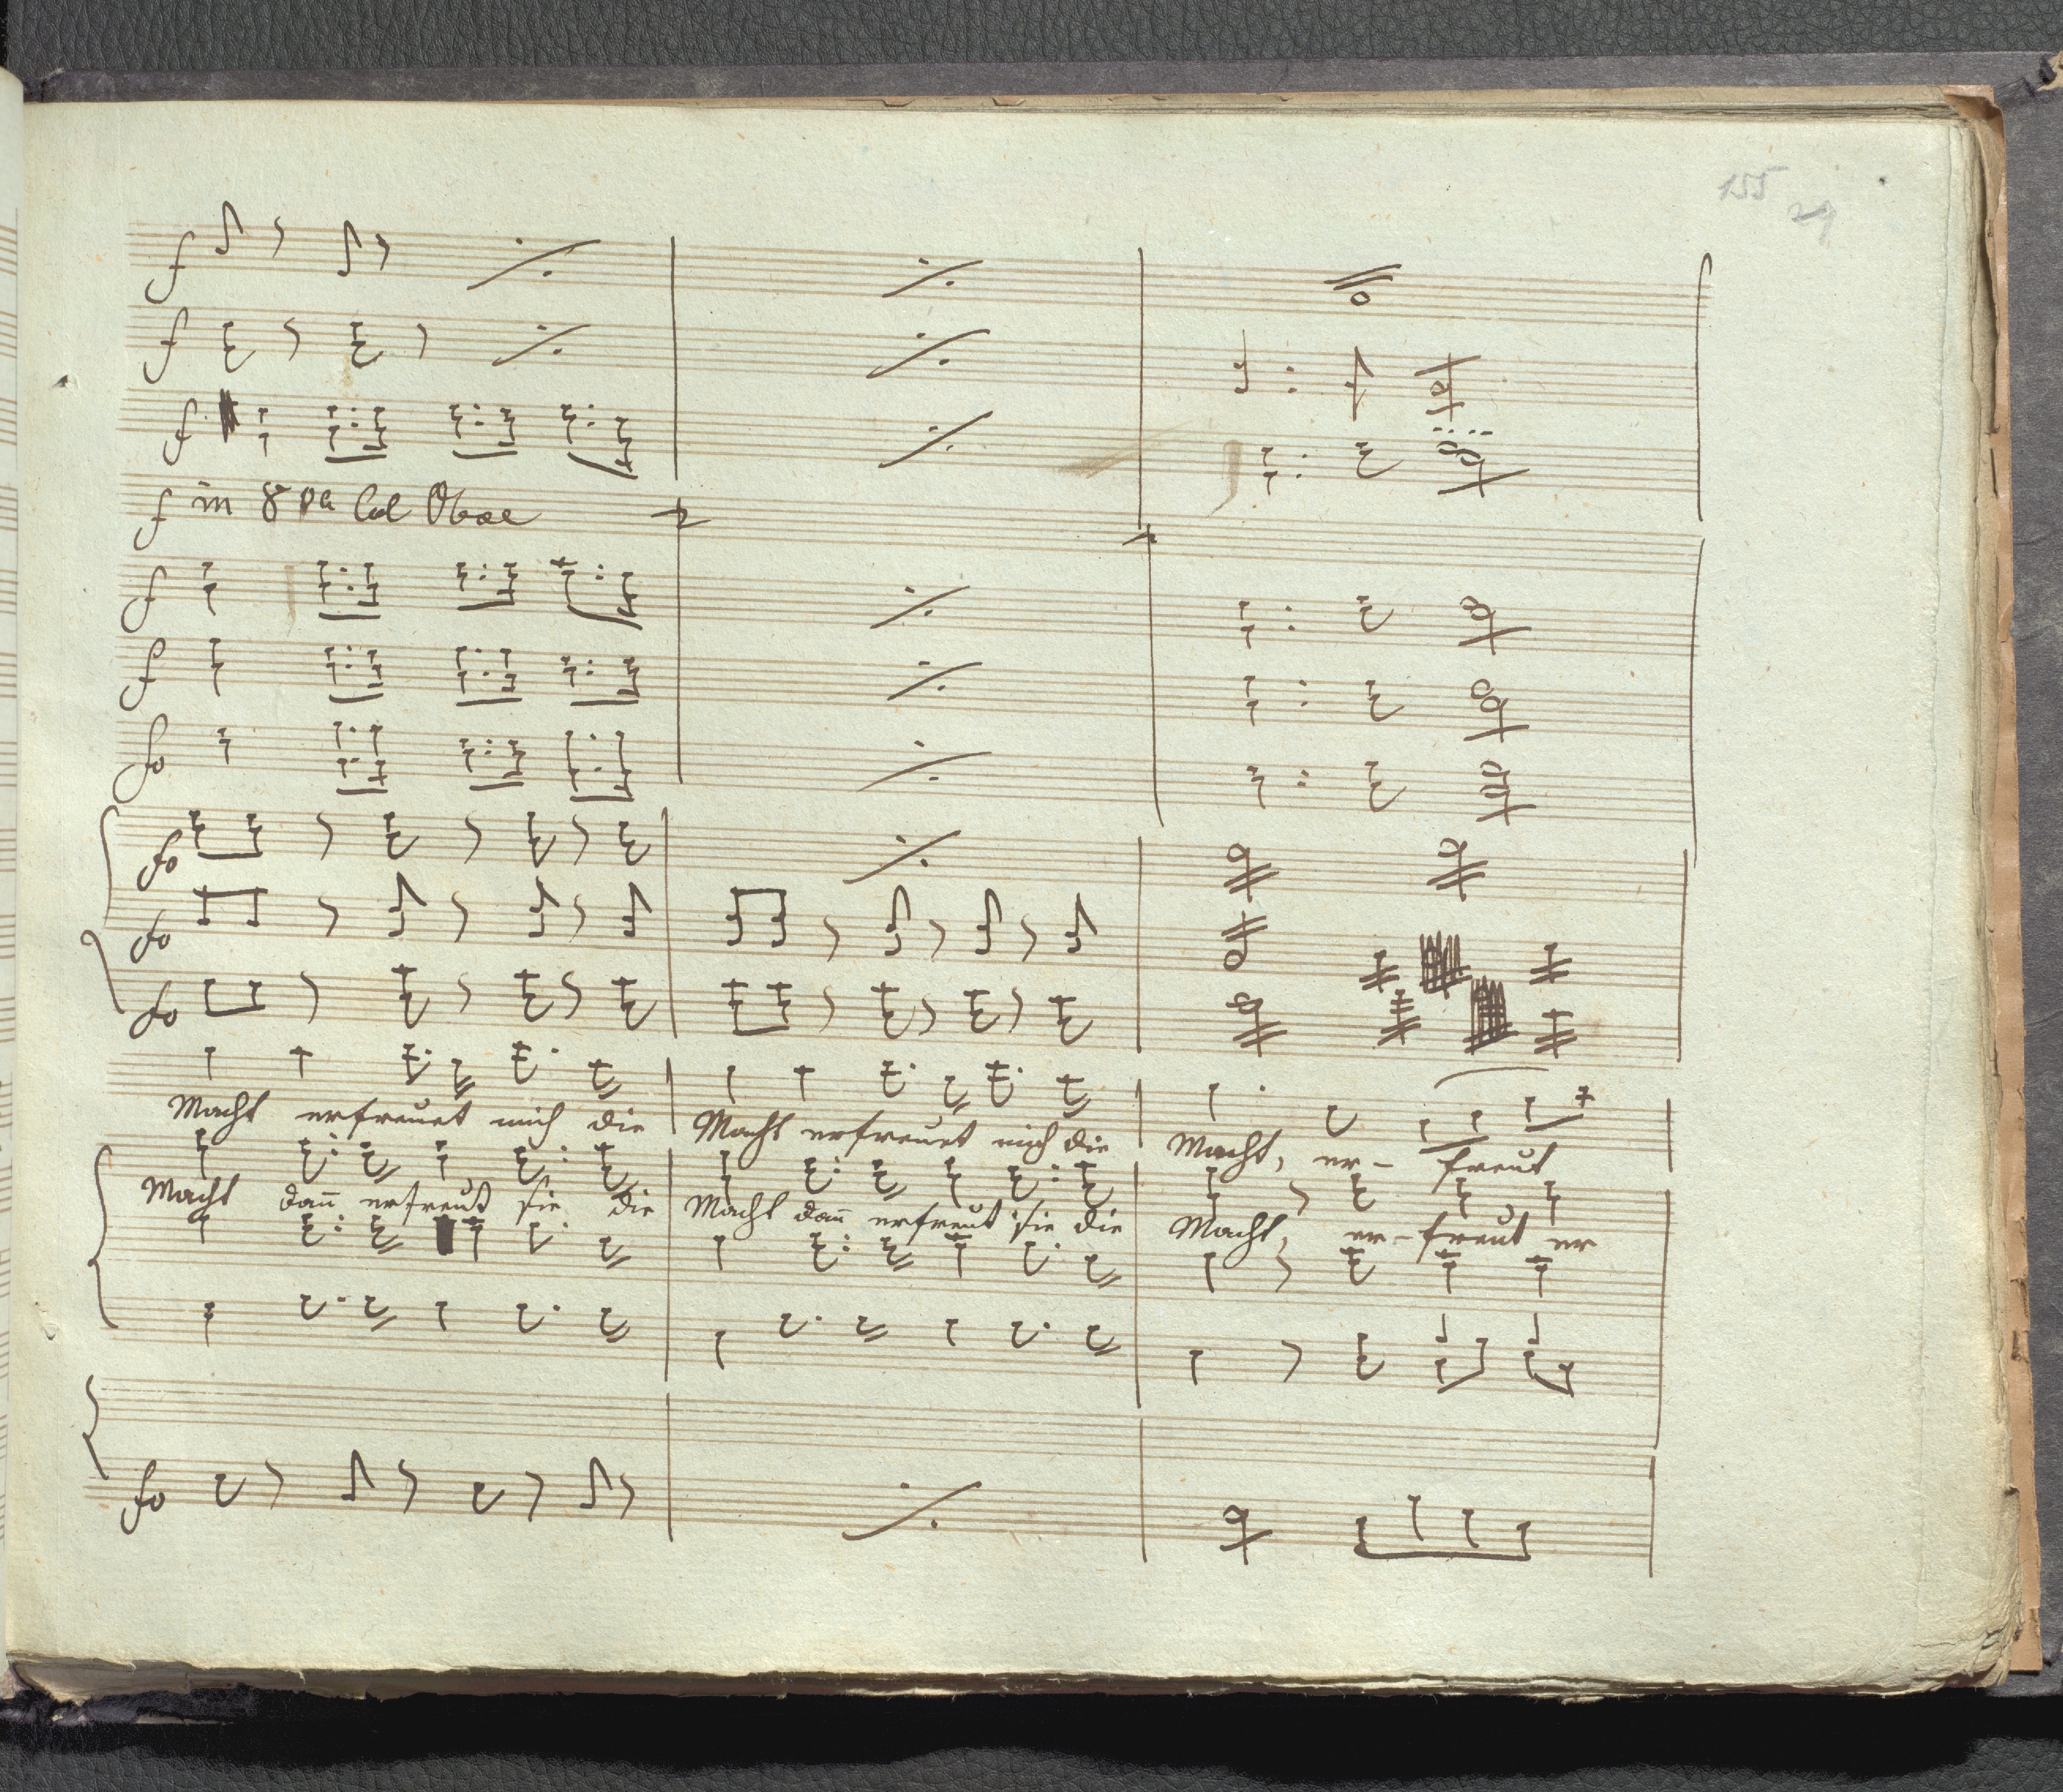 155
29
f
f
f
f in 8va Col Oboe
f
f
fo
fo
fo
fo
Macht erfreuet mich die Macht erfreuet mich die Macht, er- freut
Macht dañ erfreut sie die Macht dañ erfreut sie die Macht, er- freut er
fo